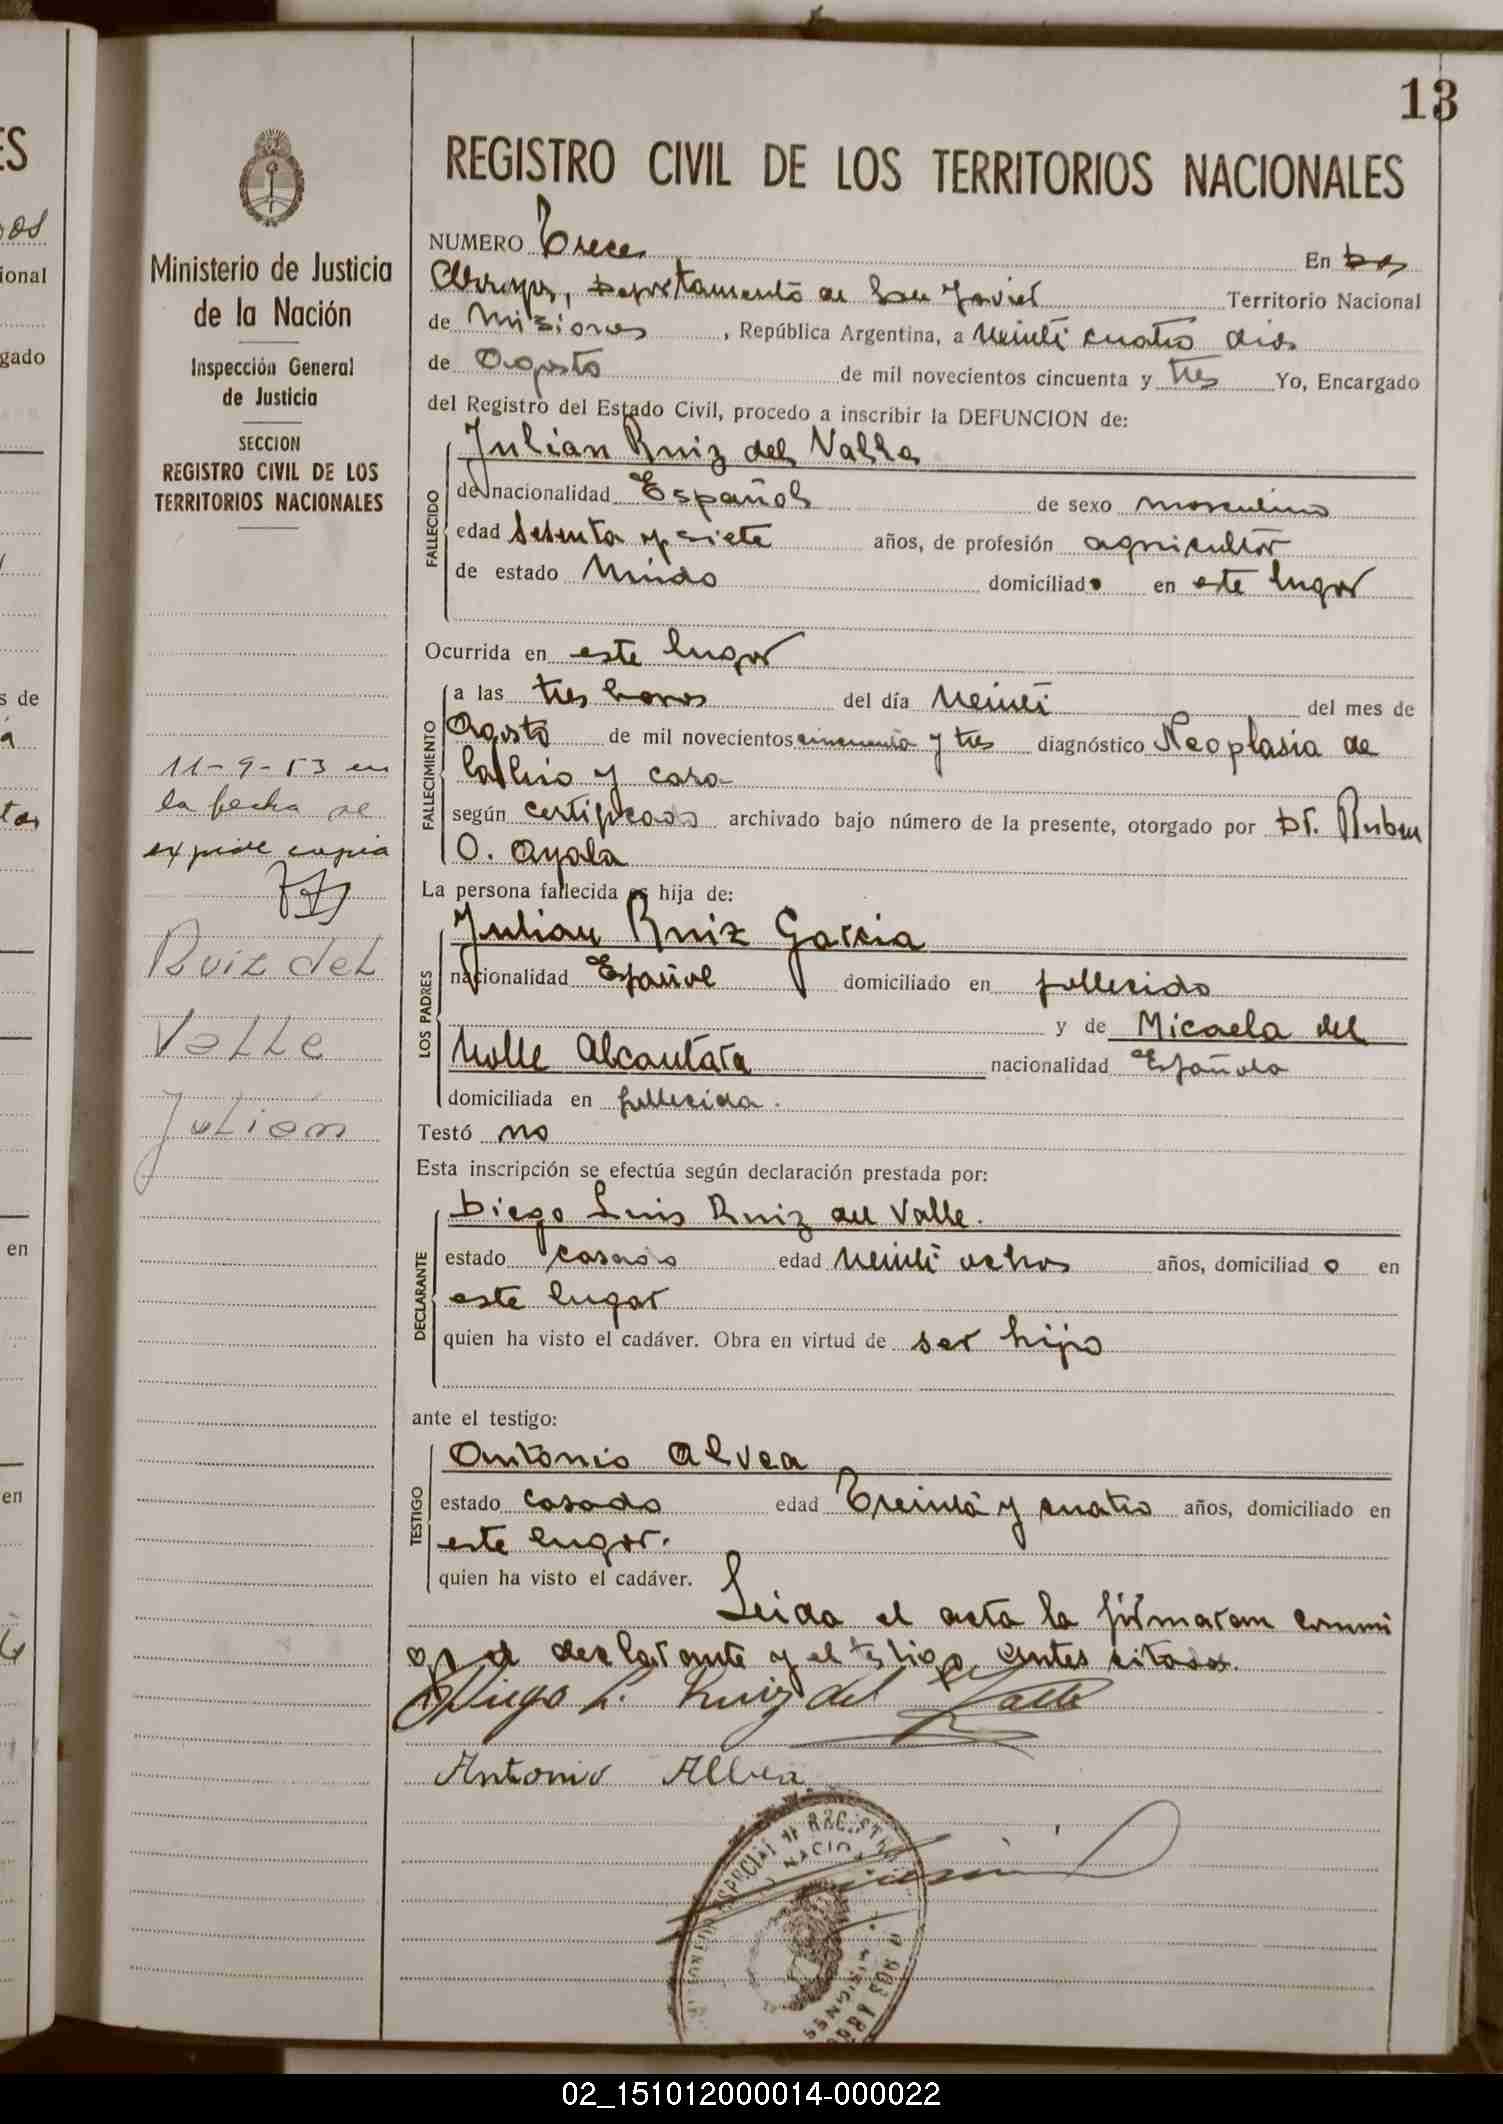 13
REGISTRO CIVIL DE LOS TERRITORIOS NACIONALES
Ministerio de Justicia
de la Nación
Inspección General
de Justicia
SECCION
REGISTRO CIVIL DE LOS
TERRITORIOS NACIONALES
11-9-53 en
la fecha se
expide copia
Ruiz del
Valle
Julián
NUMERO Trece En Dos
Arroyos, Departamento de San Javier Territorio Nacional
de Misiones, República Argentina, a veinti cuatro dias
de Agosto de mil novecientos cincuenta y tres Yo, Encargado
del Registro del Estado Civil, procedo a inscribir la DEFUNCION de:
FALLECIDO
Julian Ruiz del Valle
de nacionalidad Español de sexo masculino
edad sesenta y siete años, de profesión agricultor
de estado viudo domiciliado en este lugar
Ocurrida en este lugar
FALLECIMIENTO
a las tres horas del día veinti del mes de
Agosto de mil novecientos cincuenta y tres diagnóstico Neoplasia de
labio y cara
según certificado archivado bajo número de la presente, otorgado por Dr. Ruben
O. Ayala
La persona fallecida es hija de:
LOS PADRES
Julian Ruiz Garcia
nacionalidad Español domiciliado en fallecido
y de Micaela del
Valle Alcantara nacionalidad Española
domiciliada en fallecida.
Testó no
Esta inscripción se efectúa según declaración prestada por:
DECLARANTE
Diego Luis Ruiz del Valle.
estado casado edad veinti ochos años, domiciliado en
este lugar
quien ha visto el cadáver. Obra en virtud de ser hijo
ante el testigo:
TESTIGO
Antonio Alvea
estado casado edad Treinta y cuatro años, domiciliado en
este lugar.
quien ha visto el cadáver.
Leida el acta la firmaram conmi
go el declarante y el testigo antes citados.
Diego L. Ruiz del Valle
Antonio Albea
02_151012000014-000022